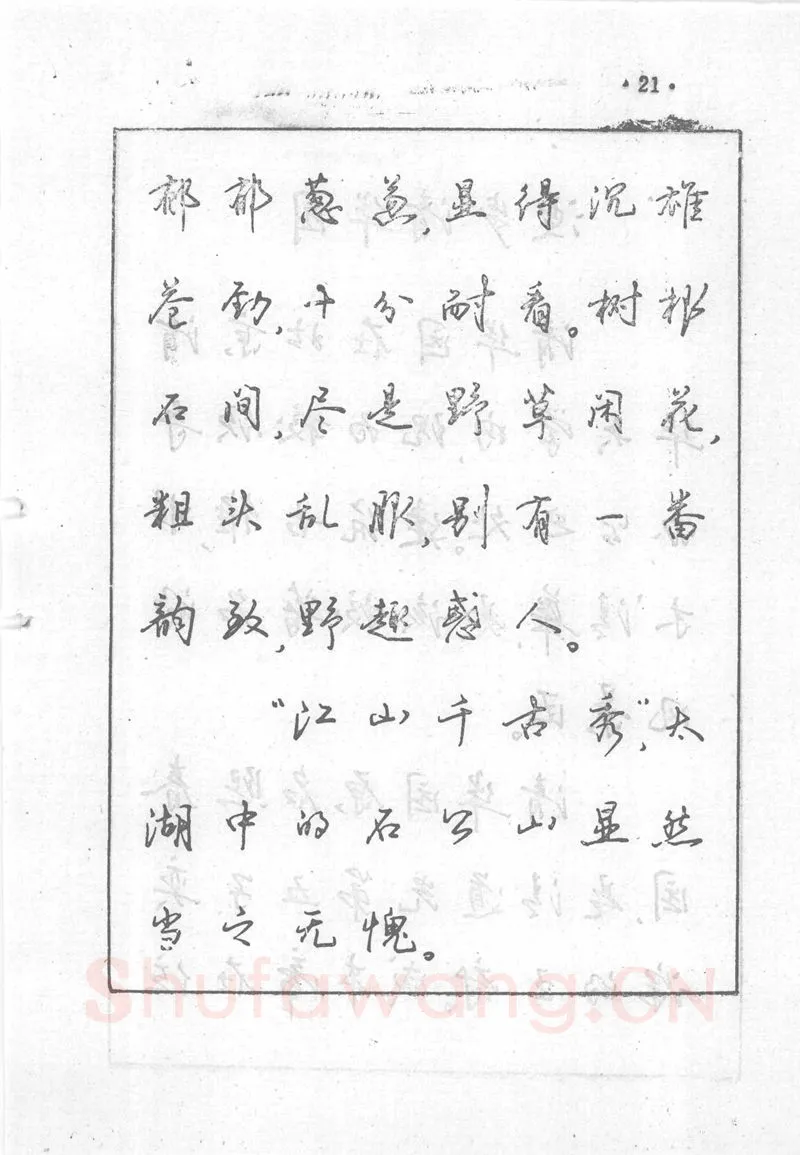 ·21·
郁郁葱葱,显得沉雄
苍劲,十分耐看。树根
石间,尽是野草闲花,
粗头乱服,别有一番
韵致,野趣惑人。
“江山千古秀”,太
湖中的石公山显然
当之无愧。
Shufawang.CN